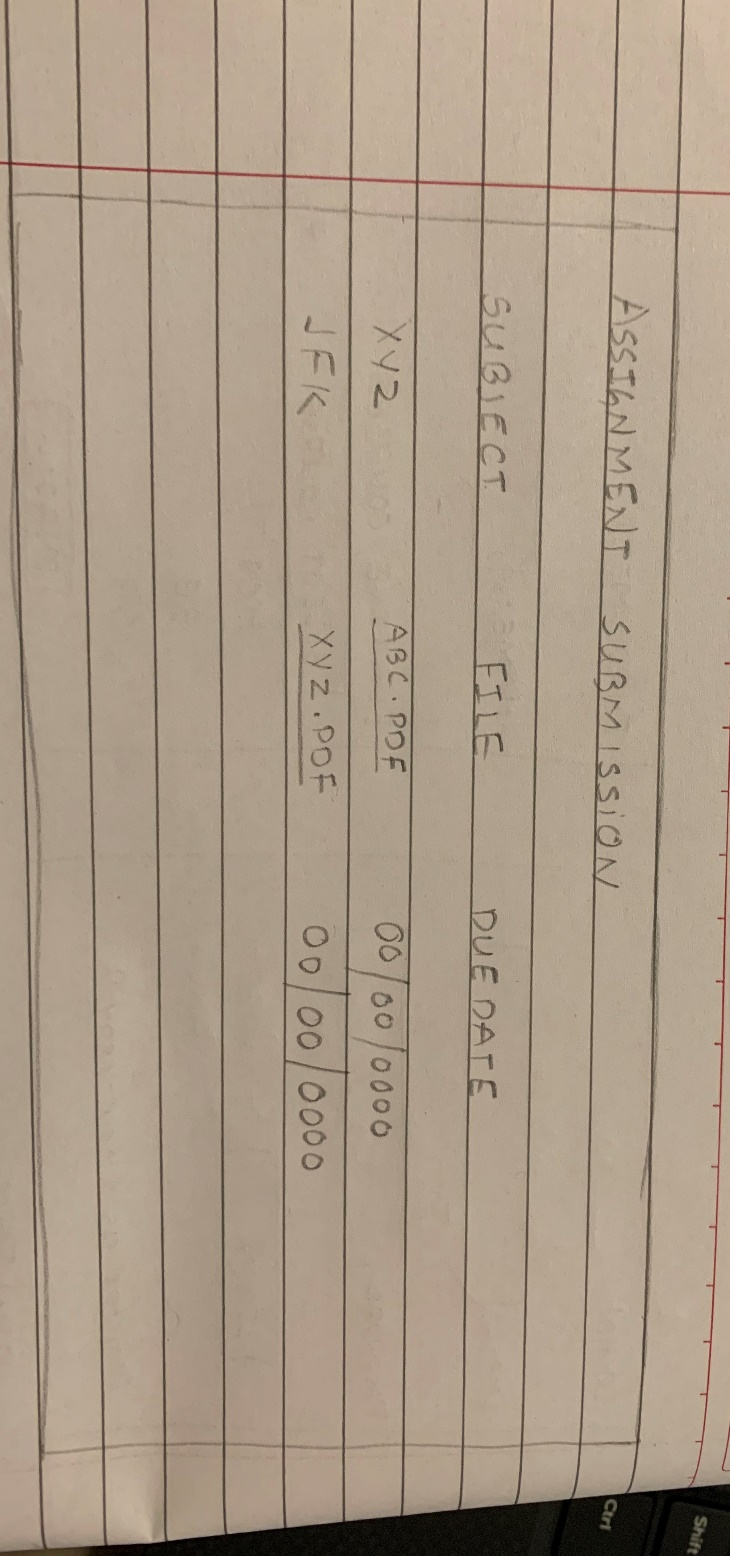 ASSIGNMENT SUBMISSION
SUBJECT FILE DUE DATE
XYZ ABC.PDF 00/00/0000
JFK XYZ.PDF 00/00/0000
Ctrl
Shift